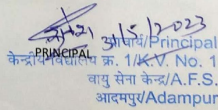 31/5/2023
PRINCIPAL आचार्य/Principal
केन्द्रीय विद्यालय क्र. 1/K.V. No. 1
वायु सेना केन्द्र/A.F.S.
आदमपुर/Adampur